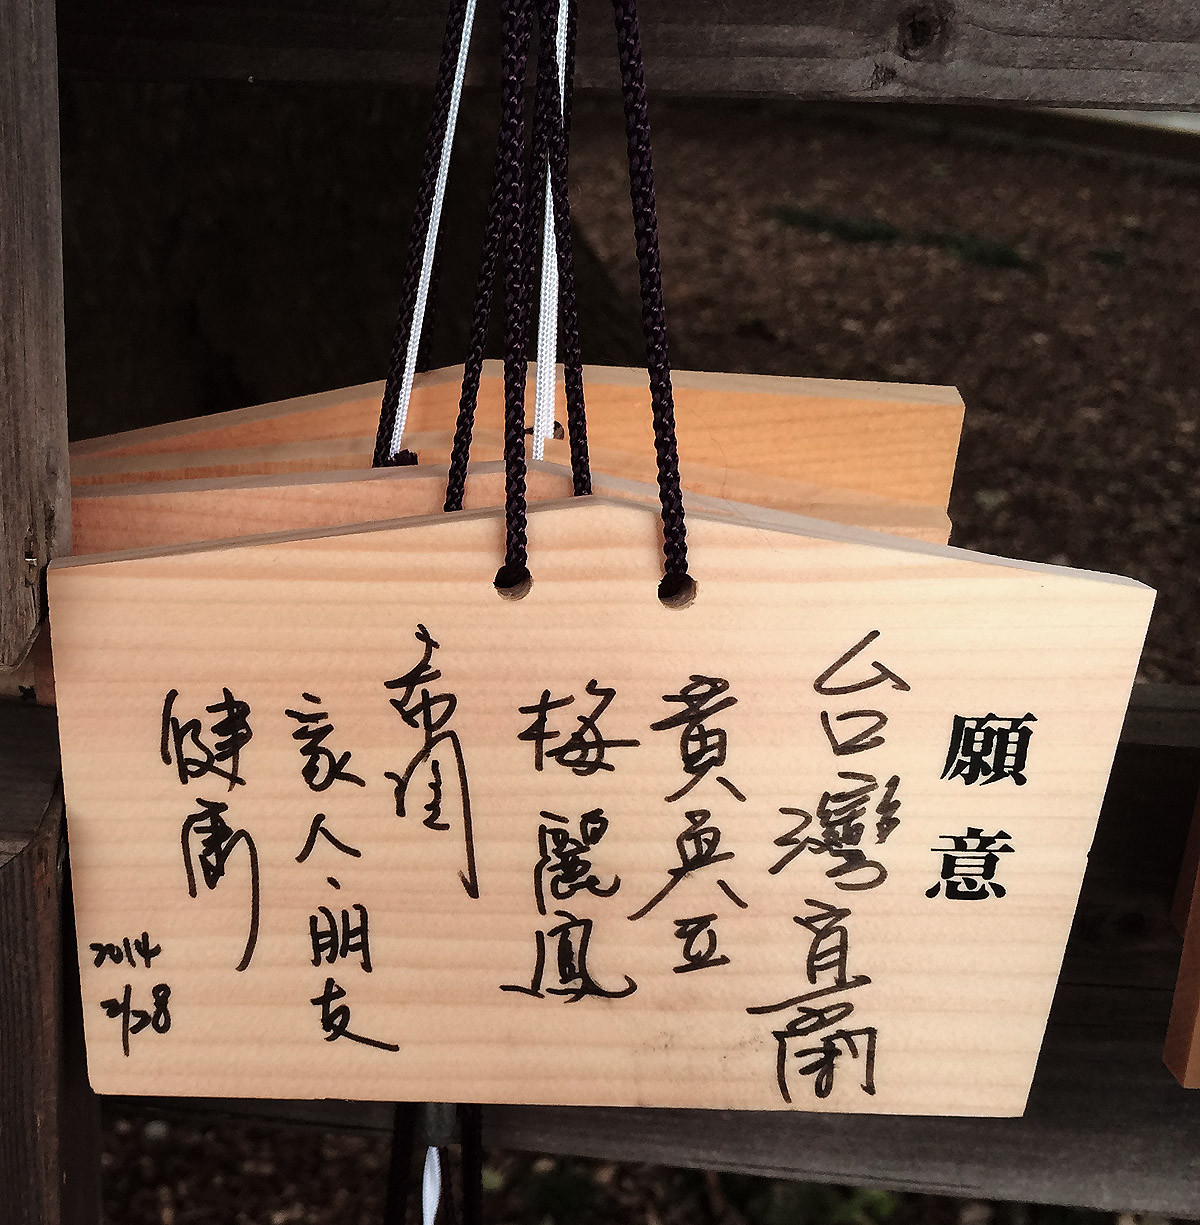 願意
台灣宜蘭
黃
梅麗鳳
希望
家人、朋友
健康
2014
2/28